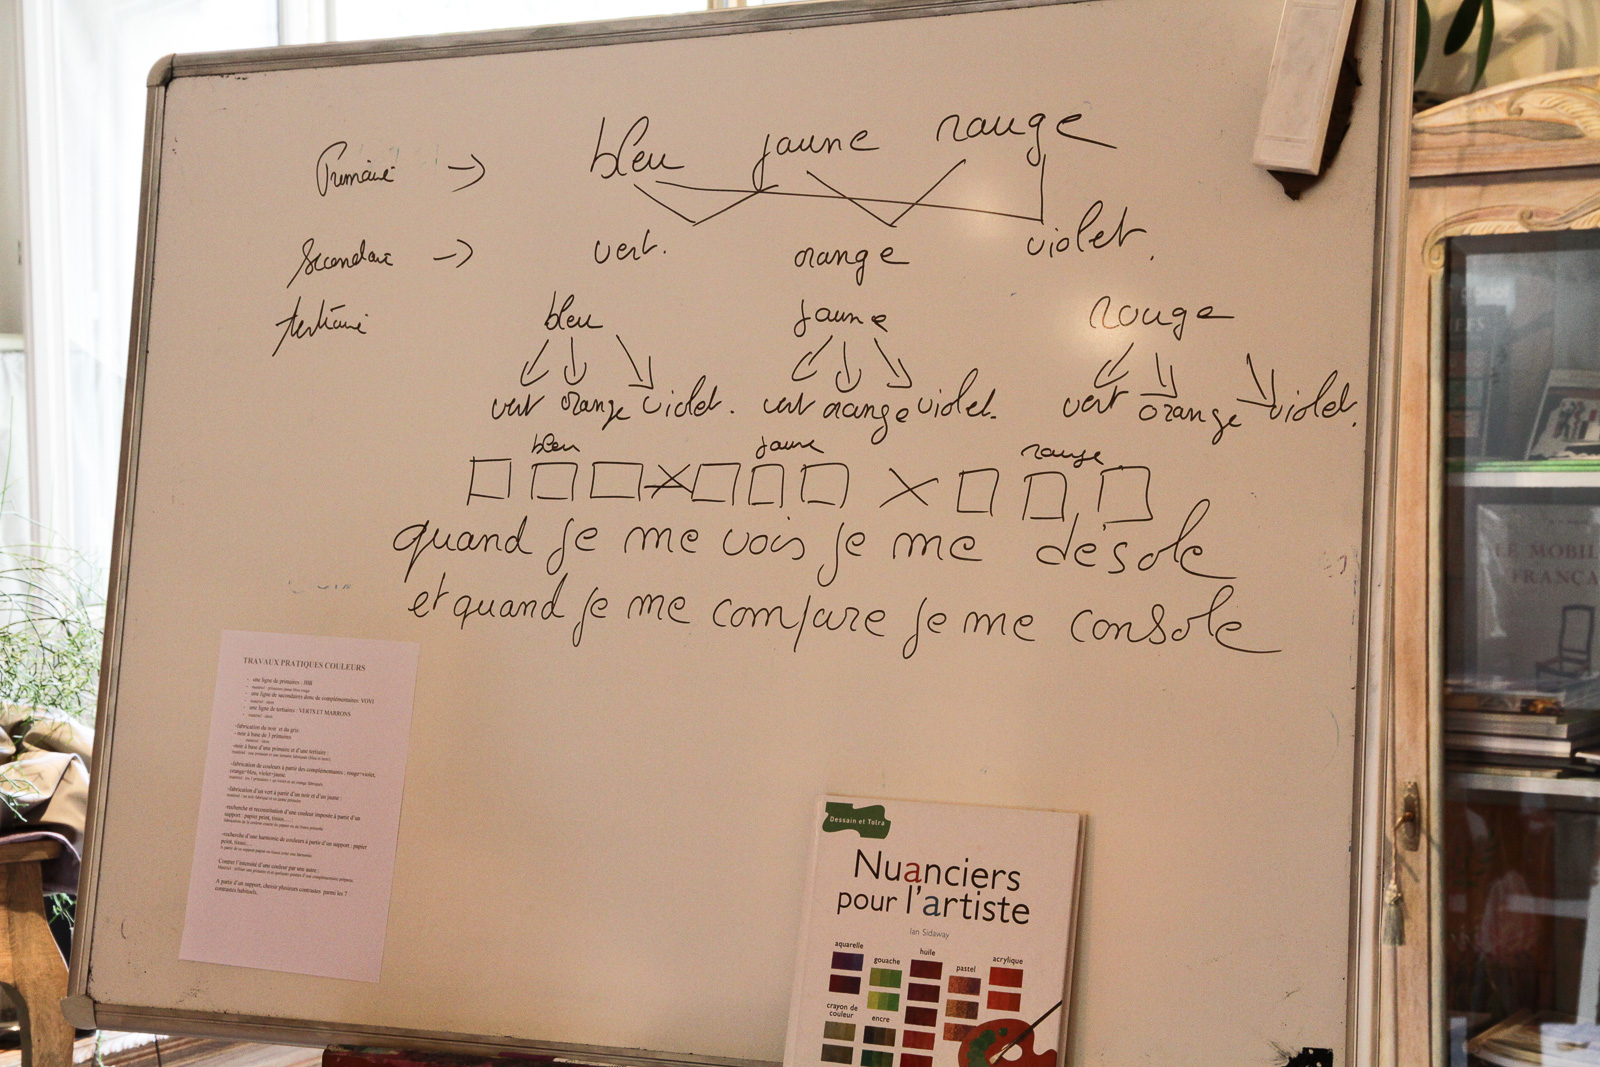 Primaire → bleu jaune rouge
Secondaire → vert. orange violet.
tertiaire bleu jaune rouge
vert orange violet. vert orange violet. vert orange violet.
bleu jaune rouge
quand je me vois je me désole
et quand je me compare je me console
TRAVAUX PRATIQUES COULEURS
- une ligne de primaires : JBR
- une ligne de secondaires donc de complémentaires: VOVI
- une ligne de tertiaires : VERTS ET MARRONS
-fabrication du noir et du gris
- noir à base de 3 primaires
-noir à base d'une primaire et d'une tertiaire :
-fabrication de couleurs à partir des complémentaires : rouge+violet,
orange+bleu, violet+jaune.
-fabrication d'un vert à partir d'un noir et d'un jaune :
-recherche et reconstitution d'une couleur imposée à partir d'un
support : papier peint, tissus,.....
-recherche d'une harmonie de couleurs à partir d'un support : papier
peint, tissus,...
Contrer l'intensité d'une couleur par une autre :
A partir d'un support, choisir plusieurs contrastes parmi les 7
contrastes habituels.
Dessain et Tolra
Nuanciers
pour l'artiste
Ian Sidaway
aquarelle
gouache
huile
pastel
acrylique
crayon de
couleur
encre
LE MOBIL
FRANÇA